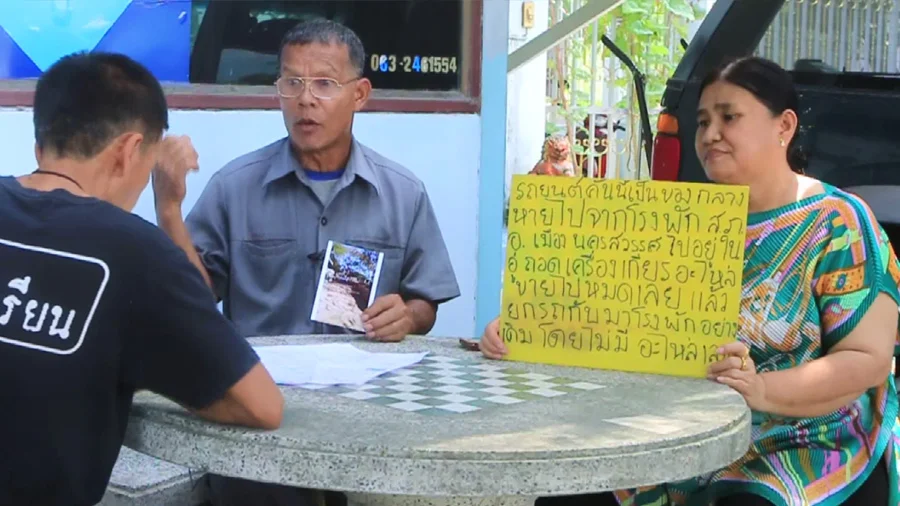 063-2461554
รถยนต์คันนี้เป็นของกลาง
หายไปจากโรงพัก สภ
อ. เมือง นครสวรรค์ ไปอยู่ใน
อู่ ถอดเครื่องเกียร์ อะไหล่
ขายไปหมดเลย แล้ว
ยกรถกับมาโรงพักอย่าง
เดิม โดยไม่มี อะไหล่
รียน